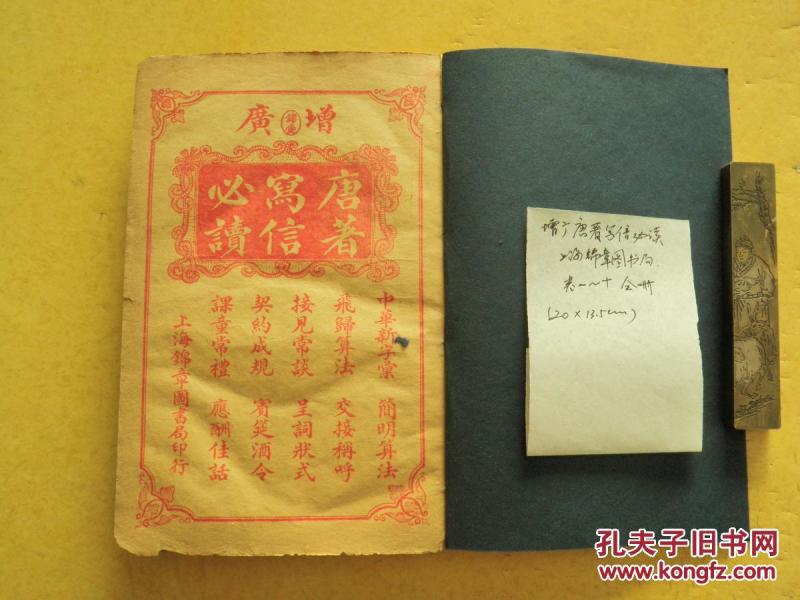 增廣
唐著
寫信
必讀
中華新字彙 簡明算法
飛歸算法 交接稱呼
接見常談 呈詞狀式
契約成規 賓筵酒令
課童常禮 應酬佳話
上海錦章圖書局印行
增广唐著写信必读
上海锦章图书局
卷一~十 全册
(20 x 13.5cm)
孔夫子旧书网
www.kongfz.com